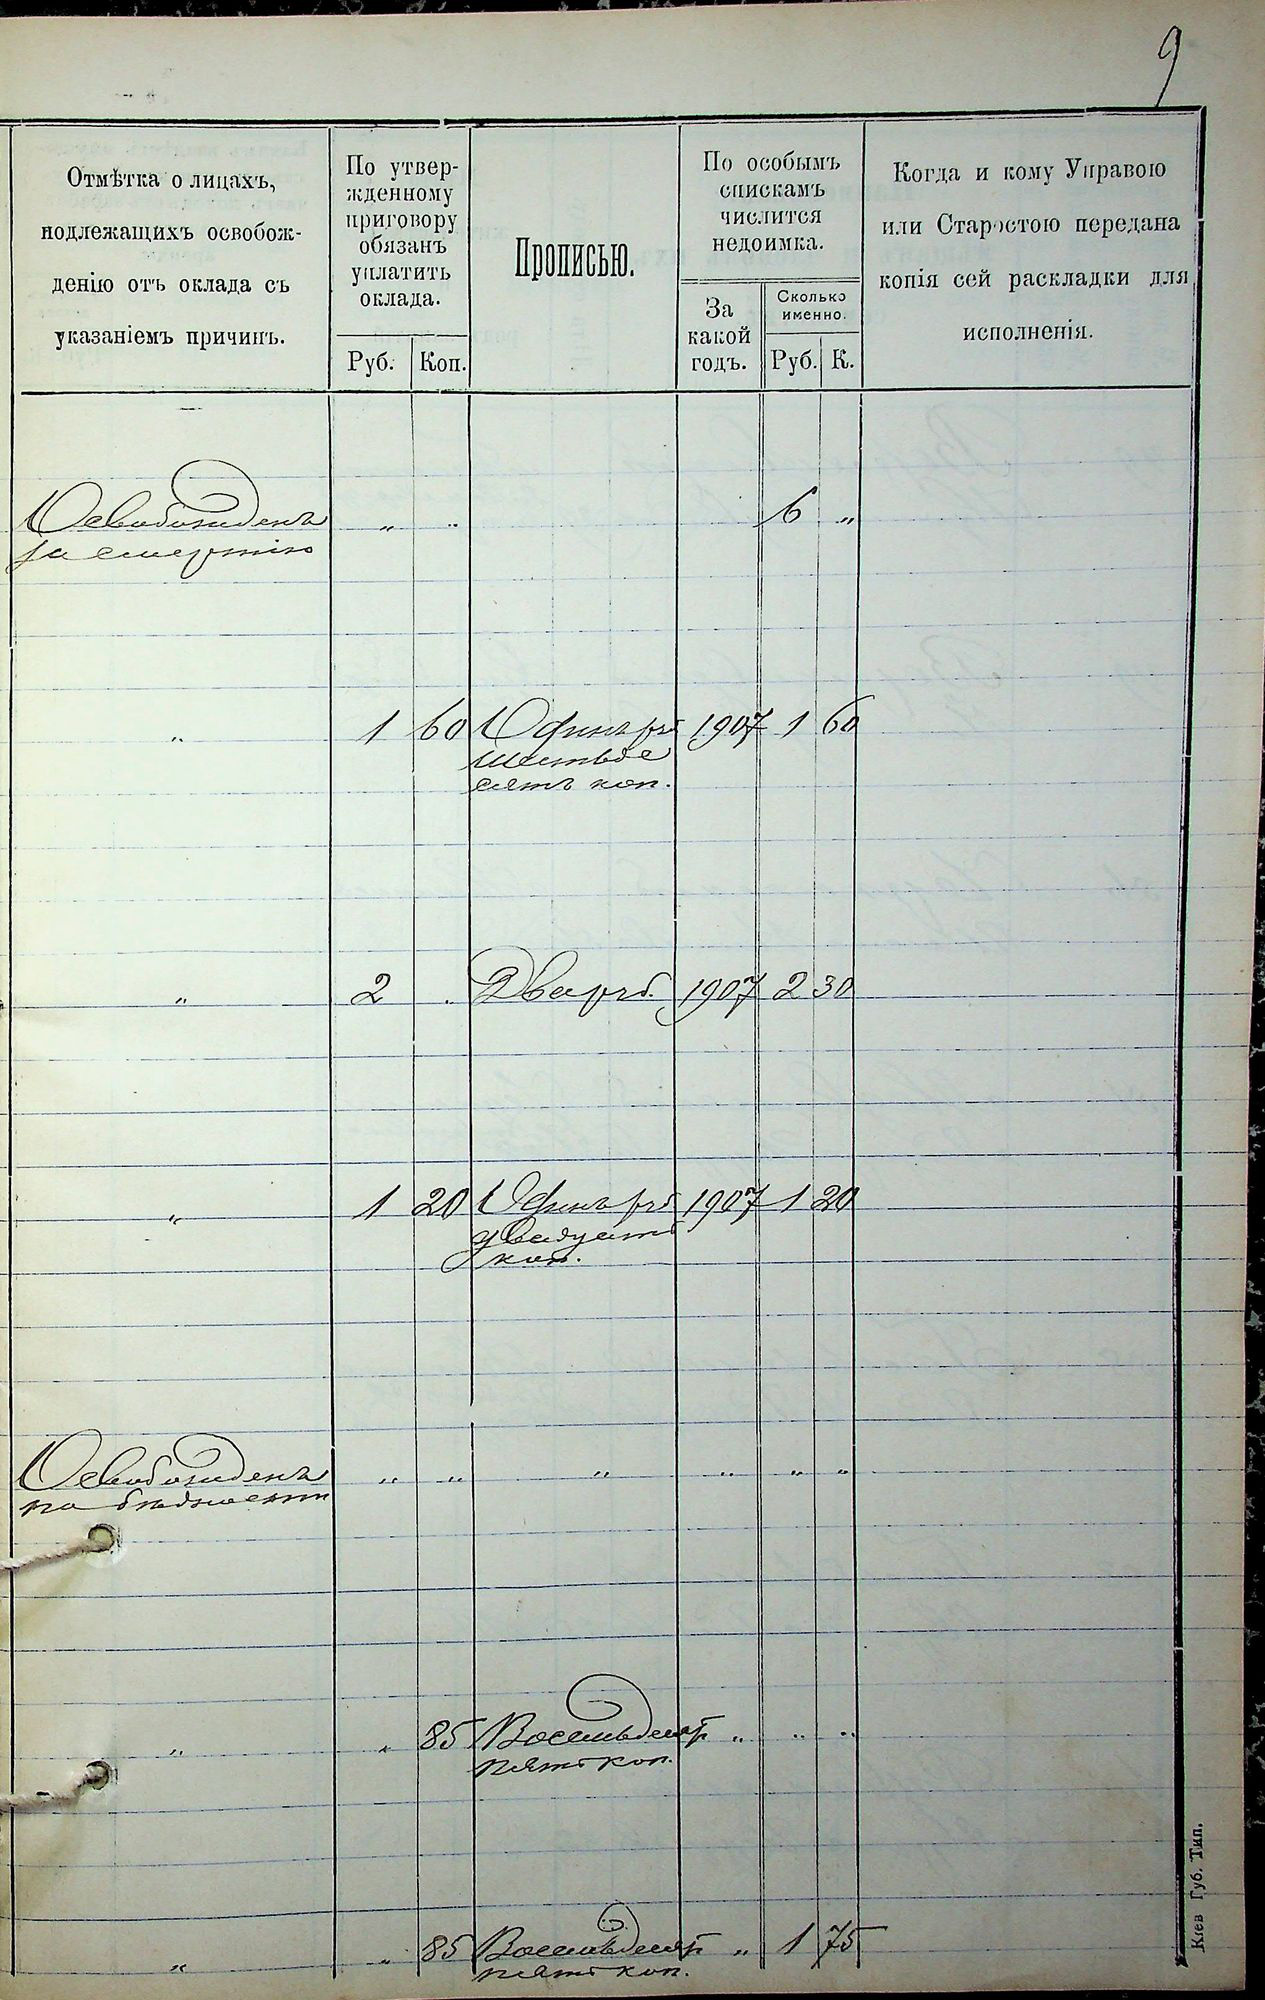 9
Отмѣтка о лицахъ,
подлежащихъ освобож-
денію отъ оклада съ
указаніемъ причинъ.
По утвер-
жденному
приговору
обязанъ
уплатить
оклада.
Руб.
Коп.
Прописью.
По особымъ
спискамъ
числится
недоимка.
За
какой
годъ.
Сколько
именно.
Руб.
К.
Когда и кому Управою
или Старостою передана
копія сей раскладки для
исполненія.
Освобожденъ „ „ 6 „
за смертію
„ 1 60 Одинъ руб 1907 1 60
шестьде
сятъ коп.
„ 2 . Два руб. 1907 2 30
„ 1 20 Одинъ руб 1907 1 20
двадцать
коп.
Освобожденъ „ „ „ „ „ „
по бѣдности
„ „ 85 Восемьдесят „ „ „
пять коп.
„ „ 85 Восемьдесят „ 1 75
пять коп.
Кіев Губ. Тип.